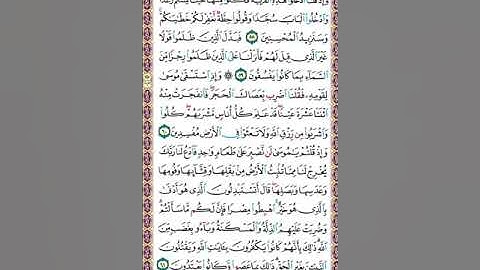 وَإِذْ قُلْنَا ادْخُلُوا هَٰذِهِ الْقَرْيَةَ فَكُلُوا مِنْهَا حَيْثُ شِئْتُمْ رَغَدًا
وَادْخُلُوا الْبَابَ سُجَّدًا وَقُولُوا حِطَّةٌ نَغْفِرْ لَكُمْ خَطَايَاكُمْ
وَسَنَزِيدُ الْمُحْسِنِينَ ٥٨ فَبَدَّلَ الَّذِينَ ظَلَمُوا قَوْلًا
غَيْرَ الَّذِي قِيلَ لَهُمْ فَأَنْزَلْنَا عَلَى الَّذِينَ ظَلَمُوا رِجْزًا مِنَ
السَّمَاءِ بِمَا كَانُوا يَفْسُقُونَ ٥٩ ۞ وَإِذِ اسْتَسْقَىٰ مُوسَىٰ
لِقَوْمِهِ فَقُلْنَا اضْرِبْ بِعَصَاكَ الْحَجَرَ فَانْفَجَرَتْ مِنْهُ
اثْنَتَا عَشْرَةَ عَيْنًا قَدْ عَلِمَ كُلُّ أُنَاسٍ مَشْرَبَهُمْ كُلُوا
وَاشْرَبُوا مِنْ رِزْقِ اللَّهِ وَلَا تَعْثَوْا فِي الْأَرْضِ مُفْسِدِينَ ٦٠
وَإِذْ قُلْتُمْ يَا مُوسَىٰ لَنْ نَصْبِرَ عَلَىٰ طَعَامٍ وَاحِدٍ فَادْعُ لَنَا رَبَّكَ
يُخْرِجْ لَنَا مِمَّا تُنْبِتُ الْأَرْضُ مِنْ بَقْلِهَا وَقِثَّائِهَا وَفُومِهَا
وَعَدَسِهَا وَبَصَلِهَا قَالَ أَتَسْتَبْدِلُونَ الَّذِي هُوَ أَدْنَىٰ
بِالَّذِي هُوَ خَيْرٌ اهْبِطُوا مِصْرًا فَإِنَّ لَكُمْ مَا سَأَلْتُمْ
وَضُرِبَتْ عَلَيْهِمُ الذِّلَّةُ وَالْمَسْكَنَةُ وَبَاءُوا بِغَضَبٍ مِنَ
اللَّهِ ذَٰلِكَ بِأَنَّهُمْ كَانُوا يَكْفُرُونَ بِآيَاتِ اللَّهِ وَيَقْتُلُونَ
النَّبِيِّينَ بِغَيْرِ الْحَقِّ ذَٰلِكَ بِمَا عَصَوْا وَكَانُوا يَعْتَدُونَ ٦١